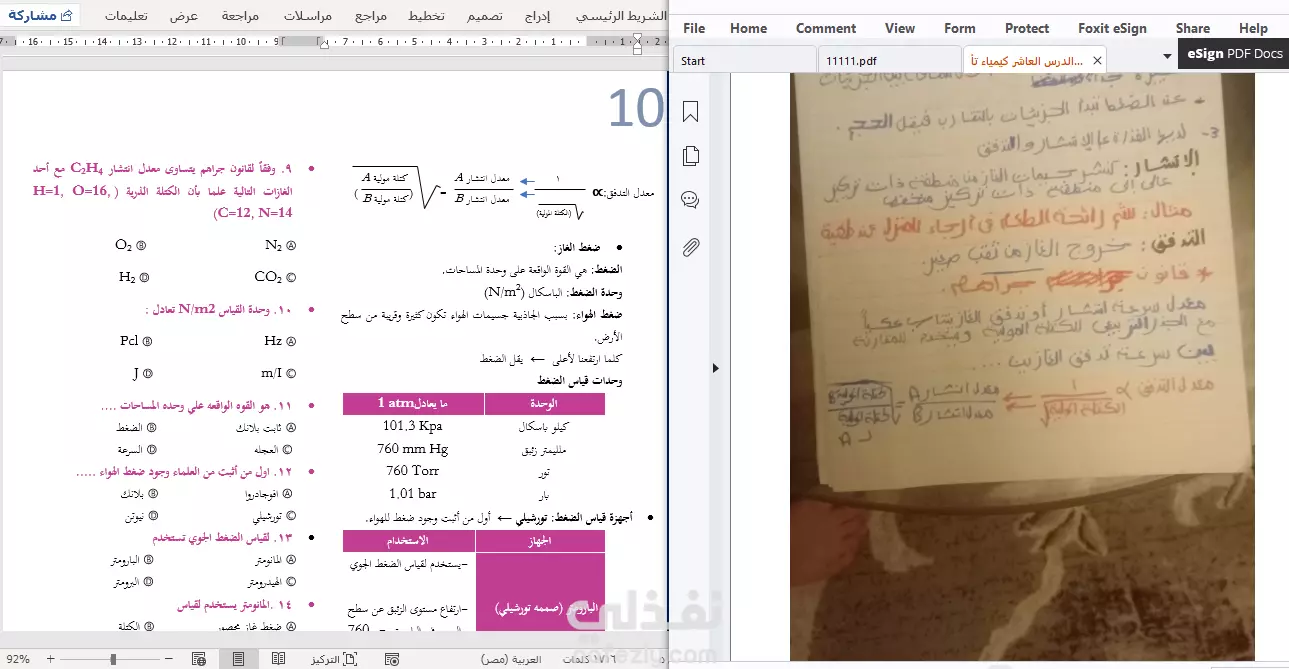 مشاركة
تعليمات
عرض
مراجعة
مراسلات
مراجع
تخطيط
تصميم
إدراج
الشريط الرئيسي
File Home Comment View Form Protect Foxit eSign Share Help
Start
11111.pdf
الدرس العاشر كيمياء تأ...
eSign PDF Docs
10
معدل التدفق:∝ ١ / √(الكتلة المولية)
معدل انتشار A / معدل انتشار B - √(كتلة مولية A / كتلة مولية B)
ضغط الغاز:
الضغط: هي القوة الواقعة على وحدة المساحات.
وحدة الضغط: الباسكال (N/m²)
ضغط الهواء: بسبب الجاذبية جسيمات الهواء تكون كثيرة وقريبة من سطح
الأرض.
كلما ارتفعنا لأعلى ← يقل الضغط
وحدات قياس الضغط
الوحدة ما يعادل1 atm
كيلو باسكال 101,3 Kpa
ملليمتر زئبق 760 mm Hg
تور 760 Torr
بار 1,01 bar
أجهزة قياس الضغط: تورشيلي ← أول من أثبت وجود ضغط للهواء.
الجهاز الاستخدام
البارومتر (صممه تورشيلي)
-يستخدم لقياس الضغط الجوي
-ارتفاع مستوى الزئبق عن سطح
760
٩. وفقاً لقانون جراهم يتساوى معدل انتشار C₂H₄ مع أحد
الغازات التالية علما بأن الكتلة الذرية (H=1, O=16,
C=12, N=14)
Ⓐ N₂ Ⓑ O₂
Ⓒ CO₂ Ⓓ H₂
١٠. وحدة القياس N/m2 تعادل :
Ⓐ Hz Ⓑ Pcl
Ⓒ m/I Ⓓ J
١١. هو القوه الواقعه علي وحده المساحات ....
Ⓐ ثابت بلانك Ⓑ الضغط
Ⓒ العجله Ⓓ السرعة
١٢. اول من أثبت من العلماء وجود ضغط الهواء .....
Ⓐ افوجادروا Ⓑ بلانك
Ⓒ تورشيلي Ⓓ نيوتن
١٣. لقياس الضغط الجوي تستخدم
Ⓐ المانومتر Ⓑ البارومتر
Ⓒ الهيدرومتر Ⓓ البرومتر
١٤ .المانومتر يستخدم لقياس
Ⓐ ضغط غاز محصور Ⓑ الكتلة
عند الضغط تبدأ الجزيئات بالتقارب فيقل الحجم .
3- لديها القدرة على الانتشار والتدفق
الانتشار : تنتشر جسيمات الغاز من منطقة ذات تركيز
عالى إلى منطقة ذات تركيز منخفض
مثال : شم رائحة الطعام في أرجاء المنزل عند طهية
التدفق : خروج الغاز من ثقب صغير.
* قانون جراهم .
معدل سرعة انتشار أو تدفق الغاز يتناسب عكسياً
مع الجذر التربيعي للكتلة المولية ويستخدم للمقارنة
بين سرعة تدفق الغازين ....
معدل التدفق ∝ 1 / √الكتلة المولية
معدل انتشار A / معدل انتشار B =
نفذلي
nafezly.com
92%
التركيز
العربية (مصر)
١٧١٦ كلمات